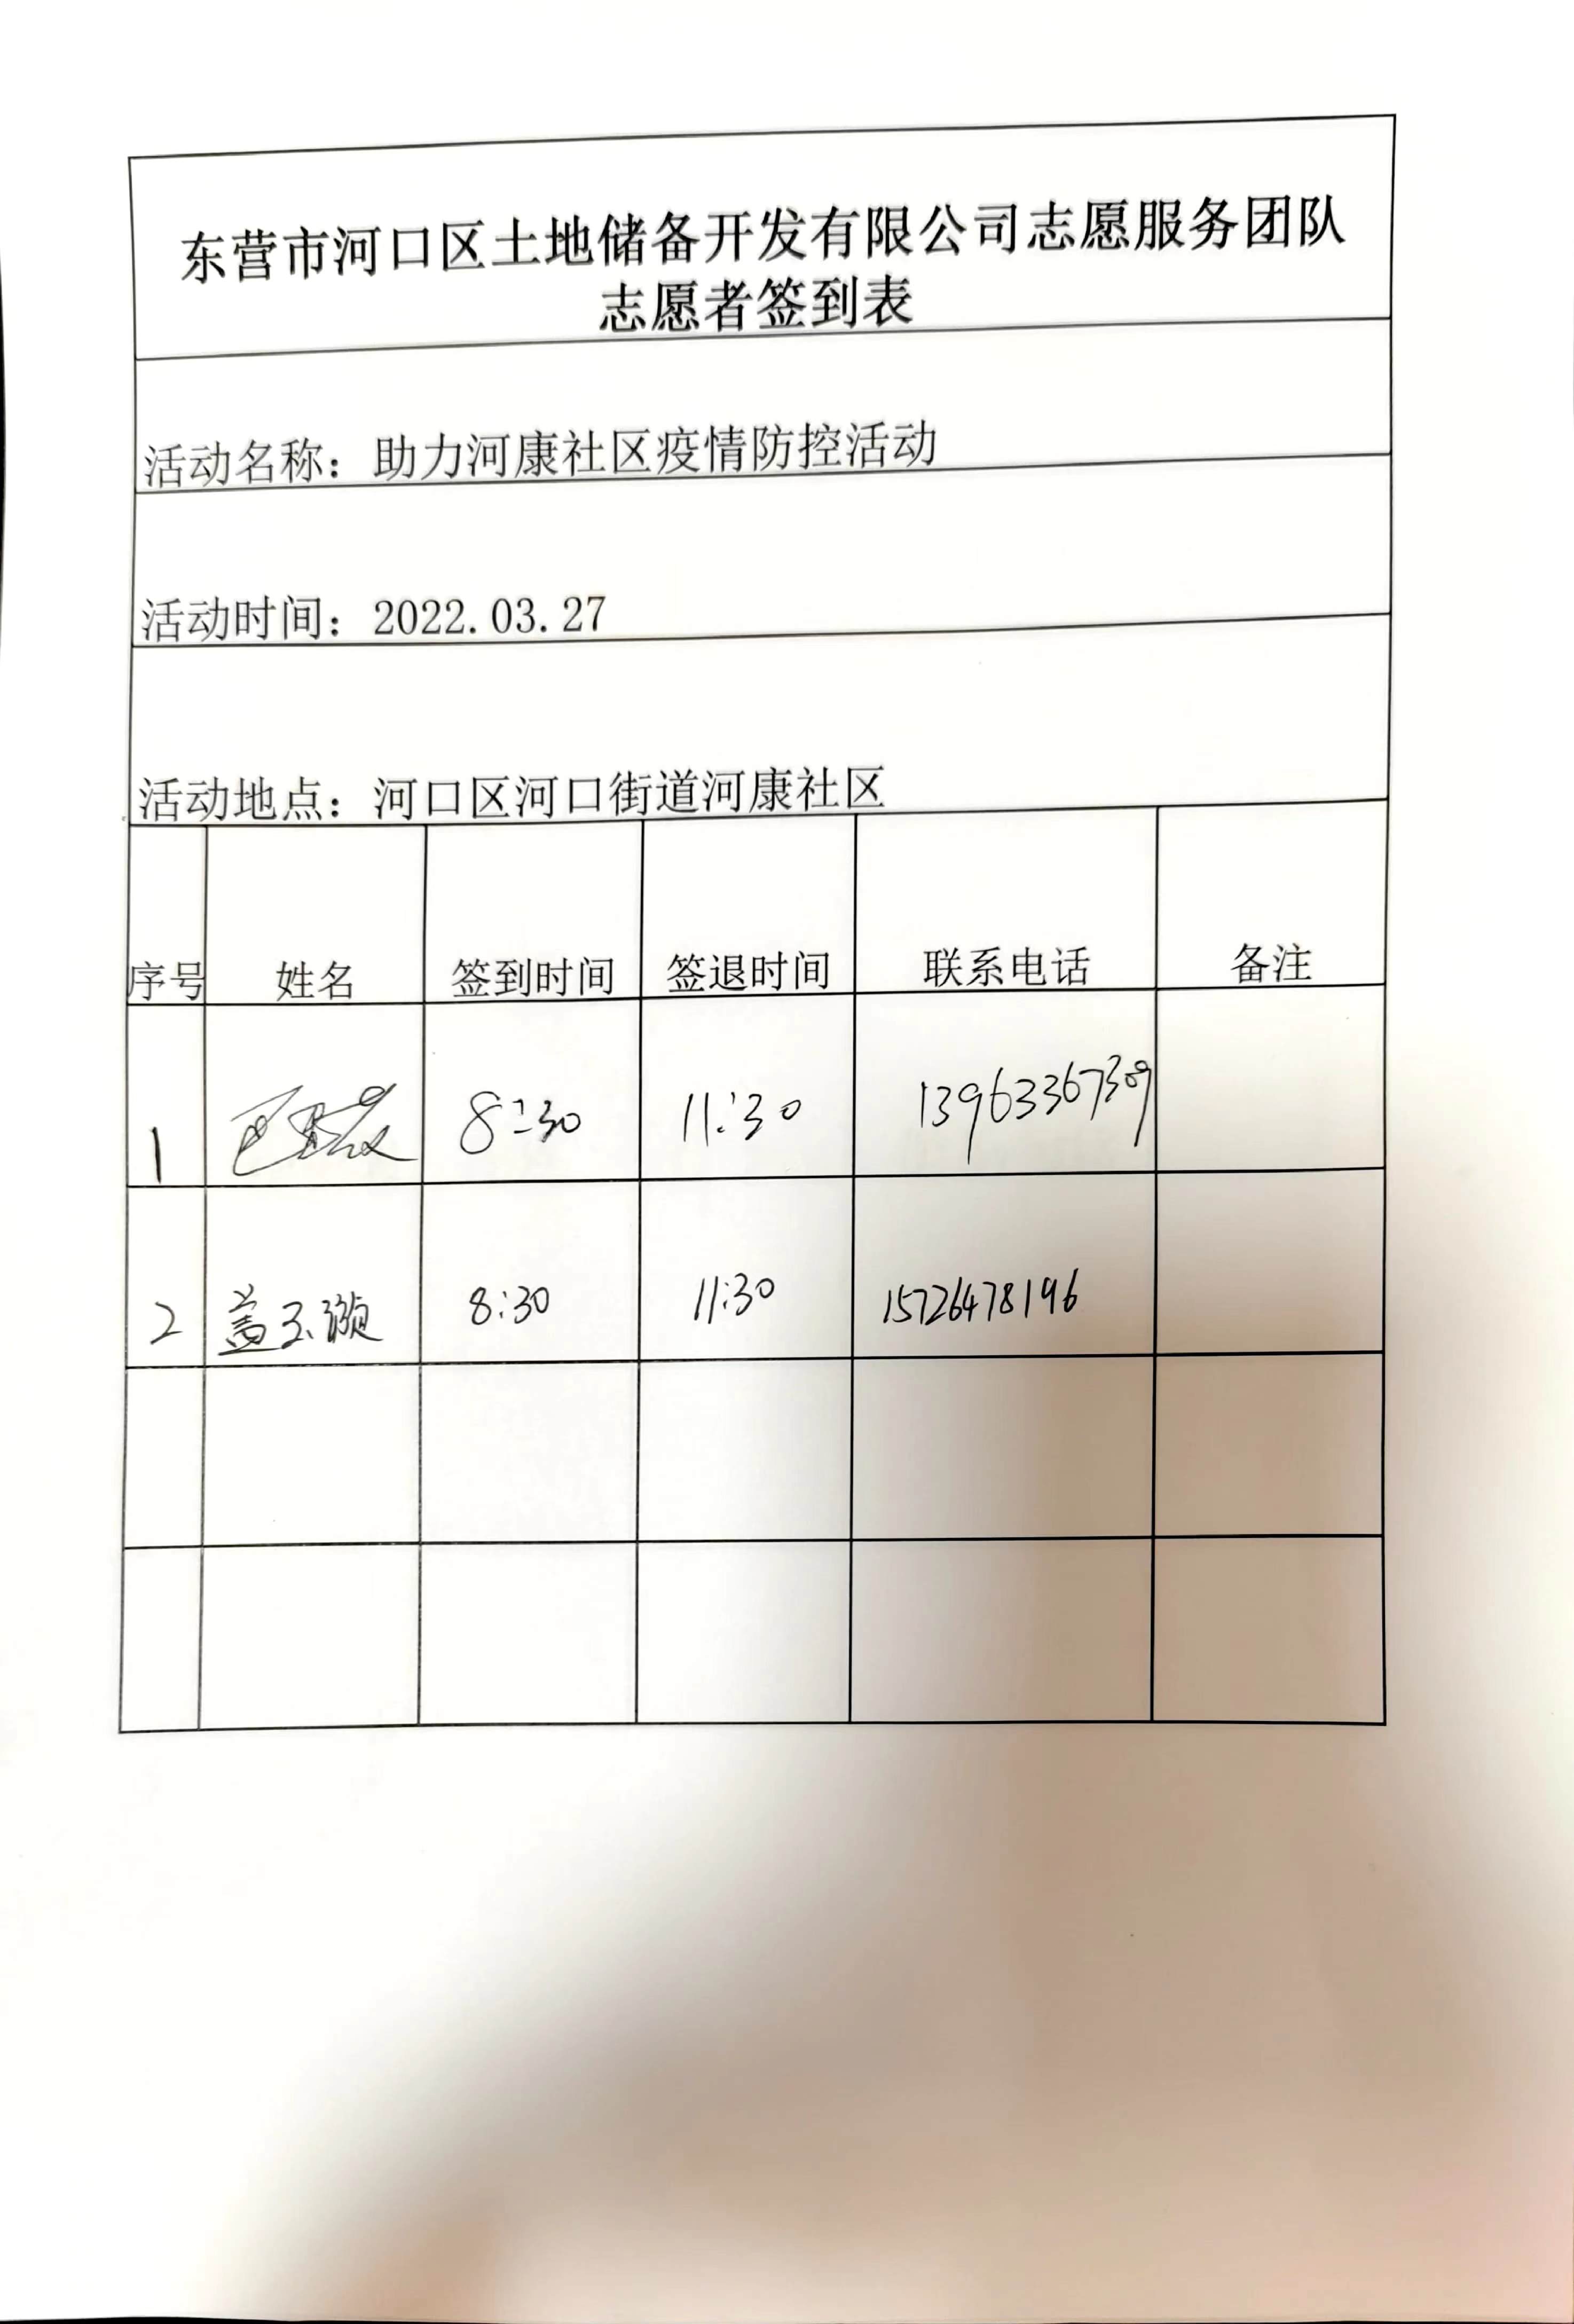 东营市河口区土地储备开发有限公司志愿服务团队
志愿者签到表
活动名称：助力河康社区疫情防控活动
活动时间：2022.03.27
活动地点：河口区河口街道河康社区
序号 姓名 签到时间 签退时间 联系电话 备注
1 8:30 11:30 13963367309
2 盖玉灏 8:30 11:30 15726478196